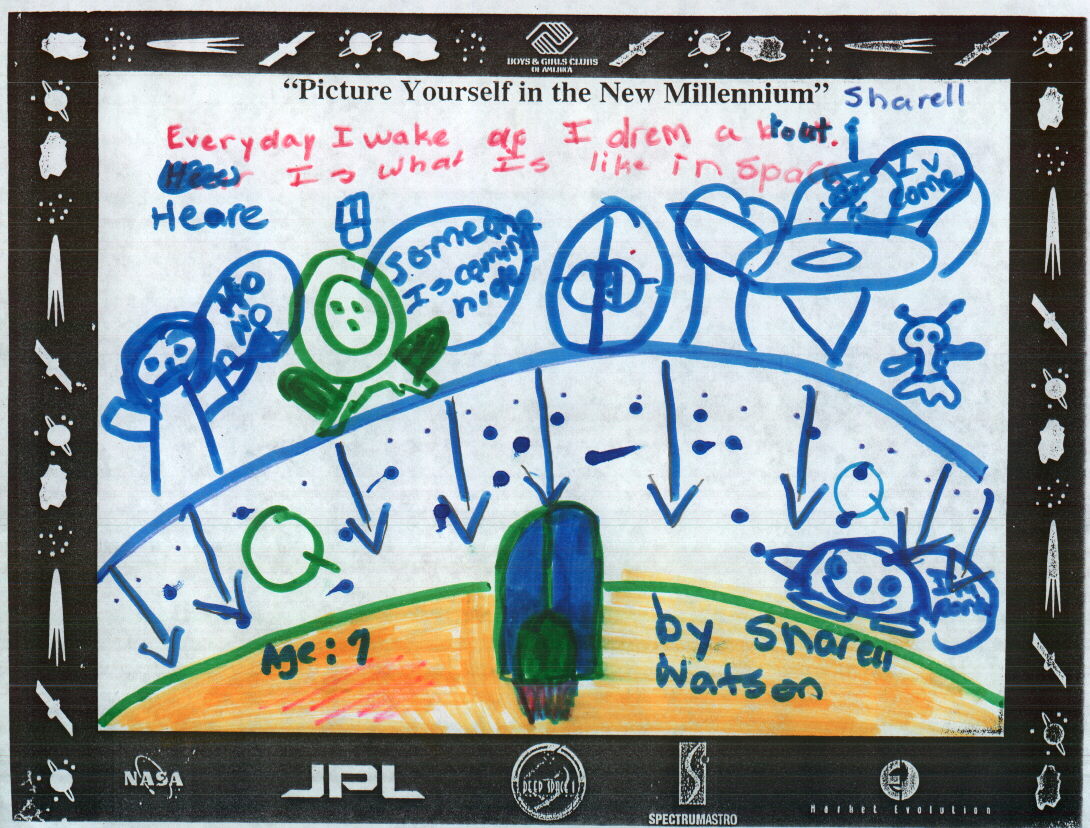 BOYS & GIRLS CLUBS
OF AMERICA
“Picture Yourself in the New Millennium”
Sharell
Everyday I wake up I drem a bout.
Heare Is what Is like in Space
I
come
Someone
Is coming
No
Age: 7
by Sharell
Watson
NASA
JPL
DEEP SPACE 1
SPECTRUMASTRO
Market Evolution